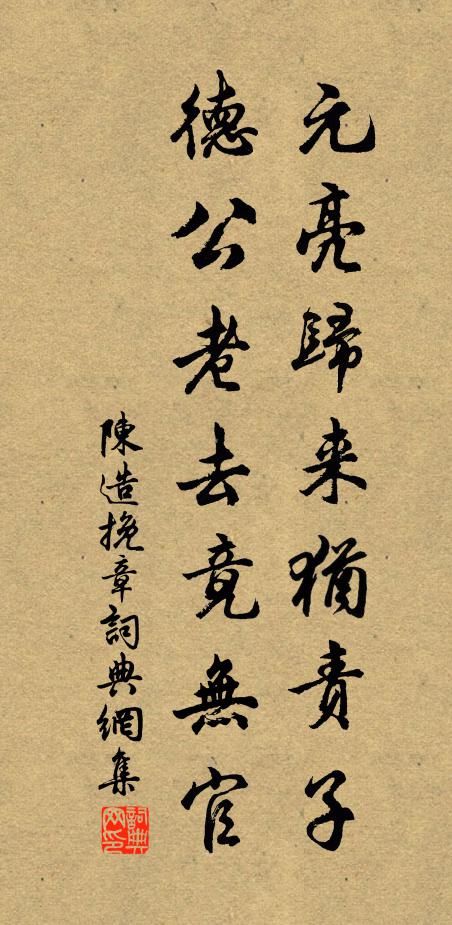 元亮歸来猶责子
德公老去竟無官
陳造挽章詞典網集
詞典网印